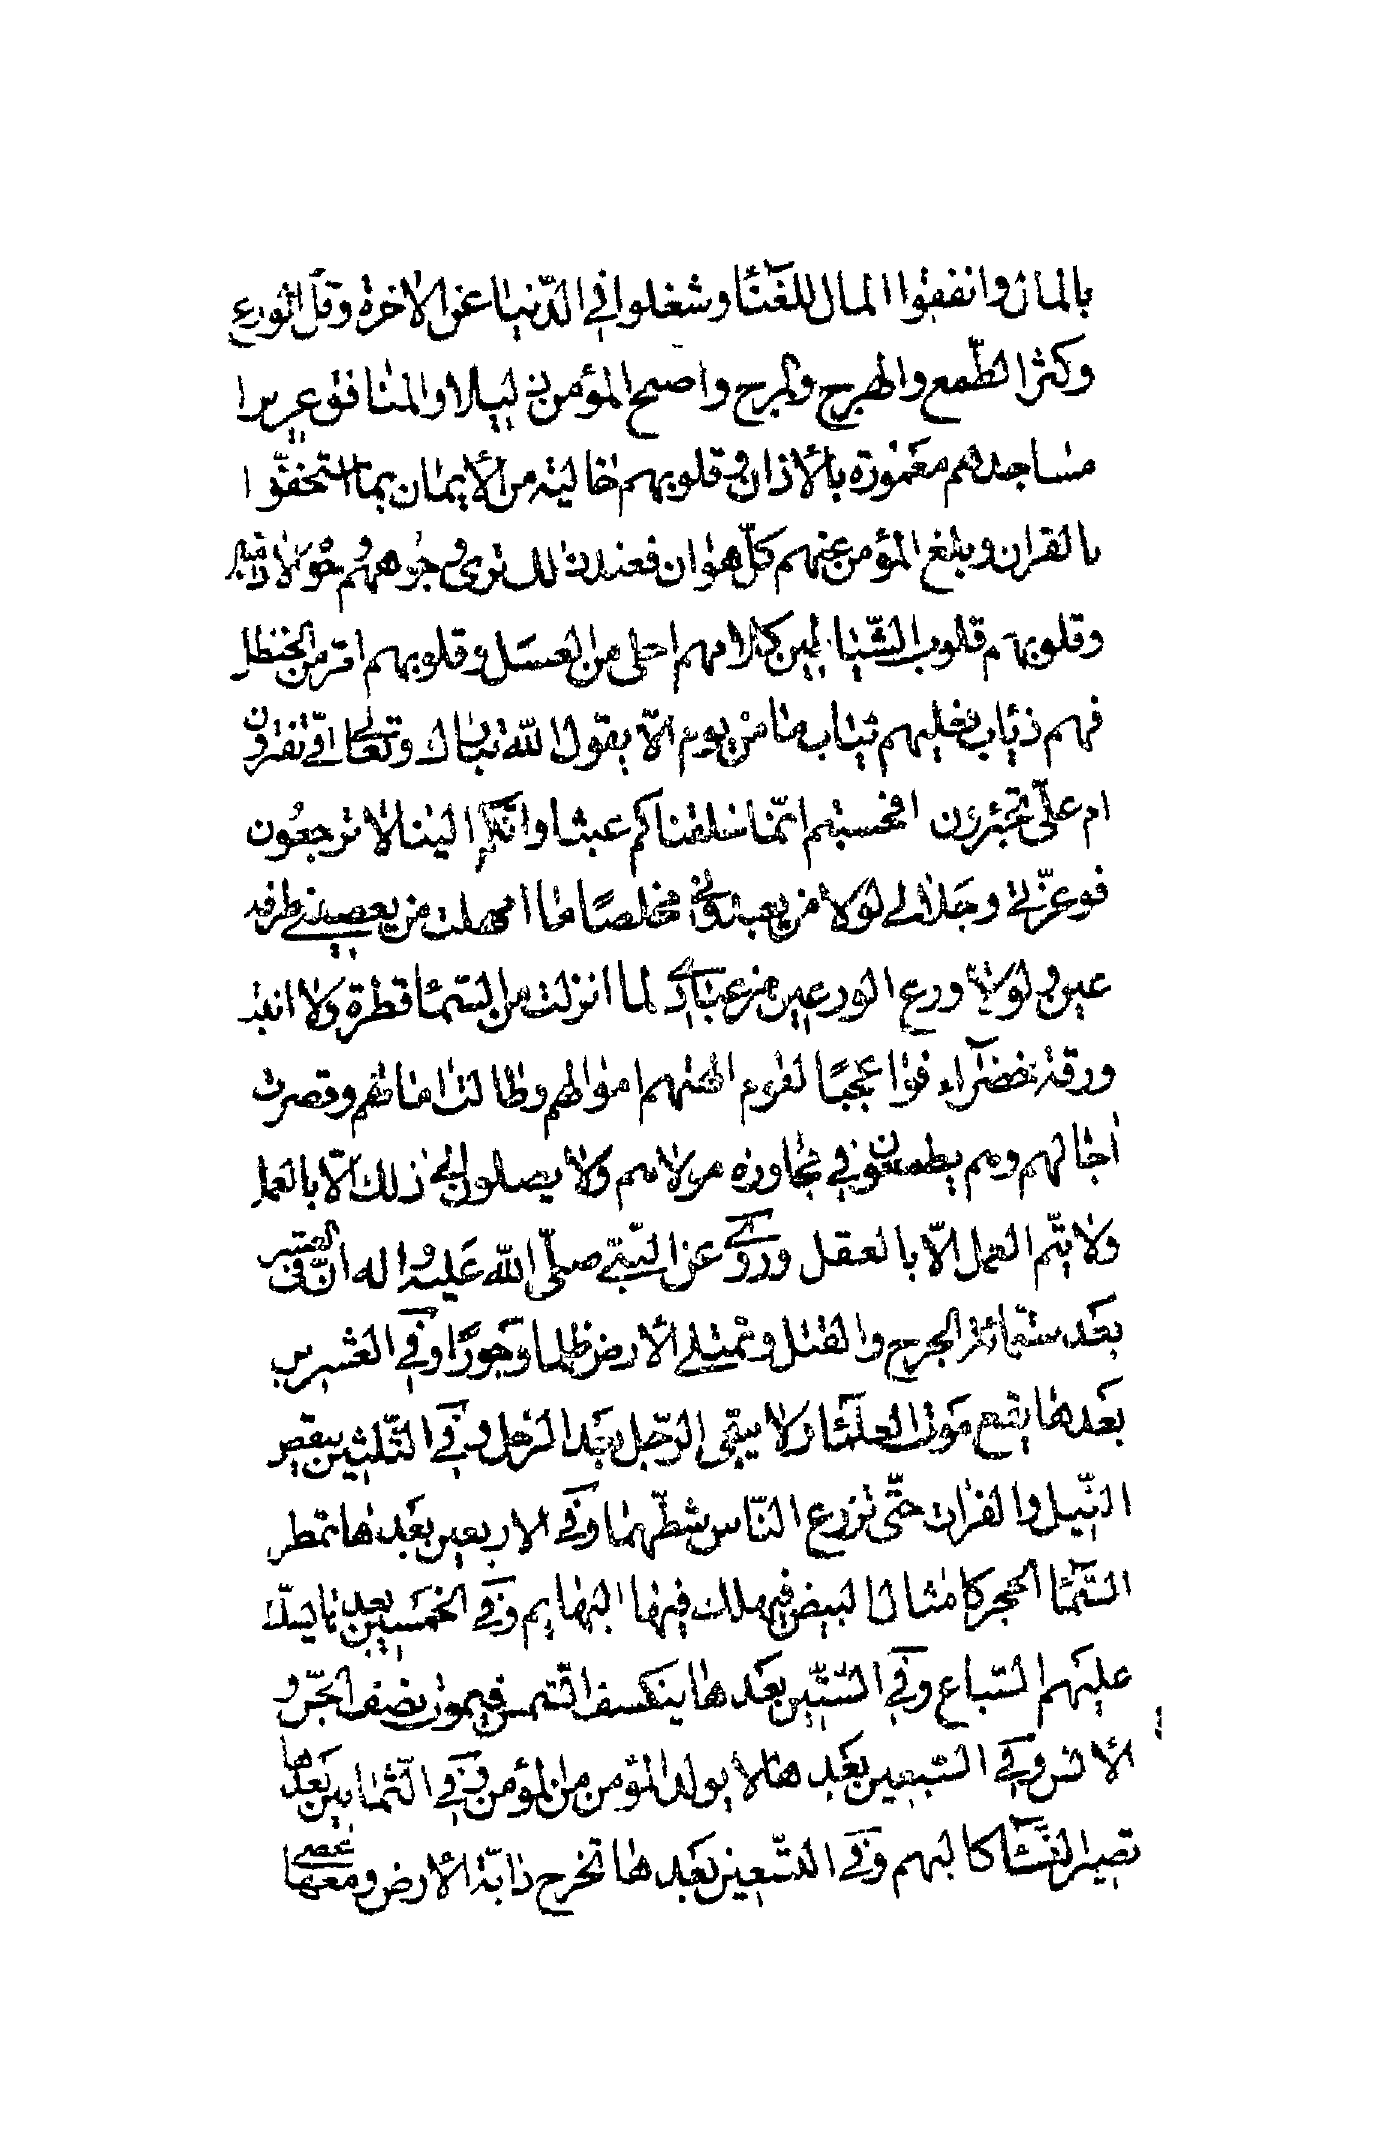 بالمال وانفقوا المال للغنآء وشغلوا في الدّنيا عن الاخرة وقلّ الورع
وكثر الطّمع والهرج والمرج واصبح المؤمن ذليلا والمنافق عزيزا
مساجدهم معمورة بالأذان وقلوبهم خالية من الأيمان بما استخفّوا
بالقران وبلغ المؤمن عنهم كلّ هوان فعند ذلك ترى وجوههم وجوه الادميّين
وقلوبهم قلوب الشّياطين كلامهم احلى من العسل وقلوبهم امرّ من الحنظل
فهم ذئاب عليهم ثياب ما من يوم الاّ يقول الله تبارك وتعالى افي تغترّون
ام علىّ تجترؤن افحسبتم انّما خلقناكم عبثا وانّكم الينا لا ترجعون
فوعزّتي وجلالي لولا من يعبدني مخلصًا ما امهلت من يعصيني طرفة
عين ولولا ورع الورعين من عبادي لما انزلت من السّمآء قطرة ولا انبتّ
ورقة خضرآء فوا عجبًا لقوم الهتهم اموالهم وطالت امالهم وقصرت
اجالهم وهم يطمعون في مجاورة مولاهم ولا يصلون الى ذلك الاّ بالعمل
ولا يتمّ العمل الاّ بالعقل وروى عن النّبي صلّى الله عليه واله انّ في العشر
بعد ستّمائة الجرح والقتل وتمتلى الأرض ظلما وجورًا وفي العشرين
بعدها يقع موت العلمآء ولا يبقى الرّجل بعد الرّجل وفي الثّلثين ينقص
النّيل والفرات حتّى تزرع النّاس شطّهما وفي الاربعين بعدها تمطر
السّمآء الحجر كامثال البيض فيهلك فيها البهايم وفي الخمسين بعدها يسلّط
عليهم السّباع وفي السّتّين بعدها ينكسف الشّمس فيموت نصف الجنّ و
الأنس وفي السّبعين بعدها لا يولد المؤمن من المؤمن وفي الثّمانين بعدها
تصير النّسآء كالبهم وفي التّسعين بعدها تخرج دابّة الأرض ومعها عصى